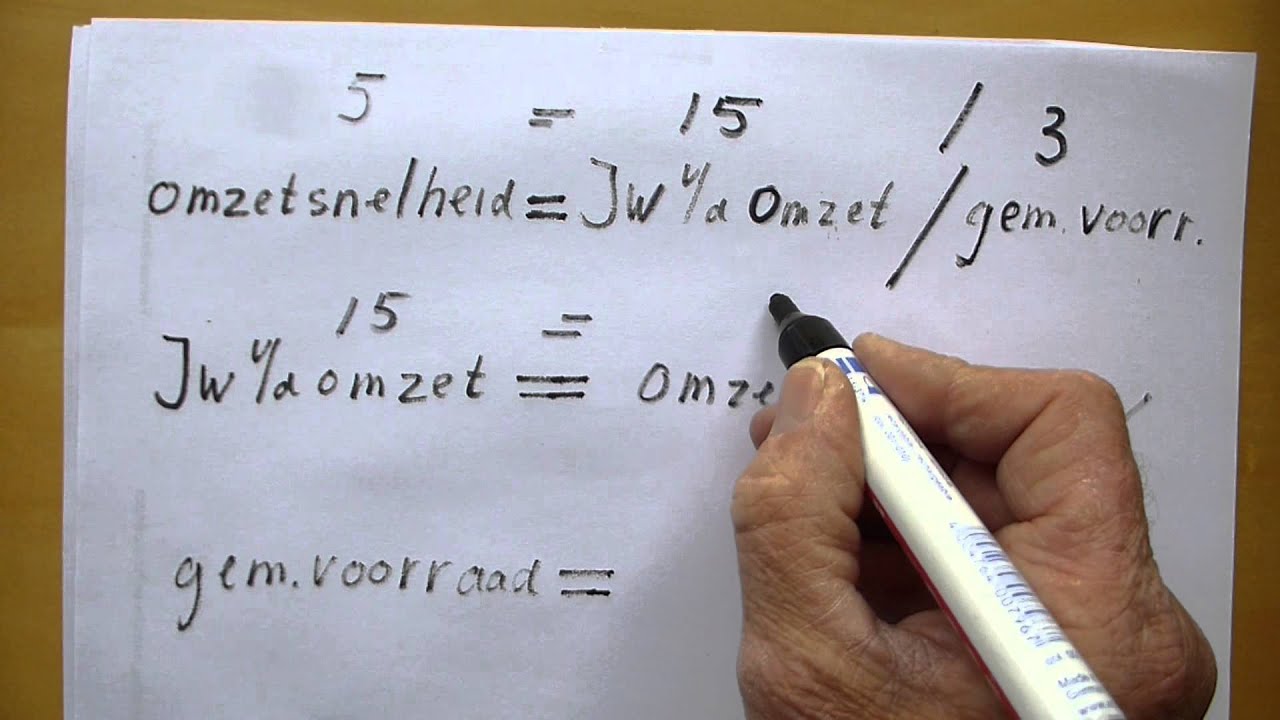 5 = 15 / 3
omzetsnelheid = Jw v/d omzet / gem. voorr.
15 =
Jw v/d omzet = omze
gem. voorraad =